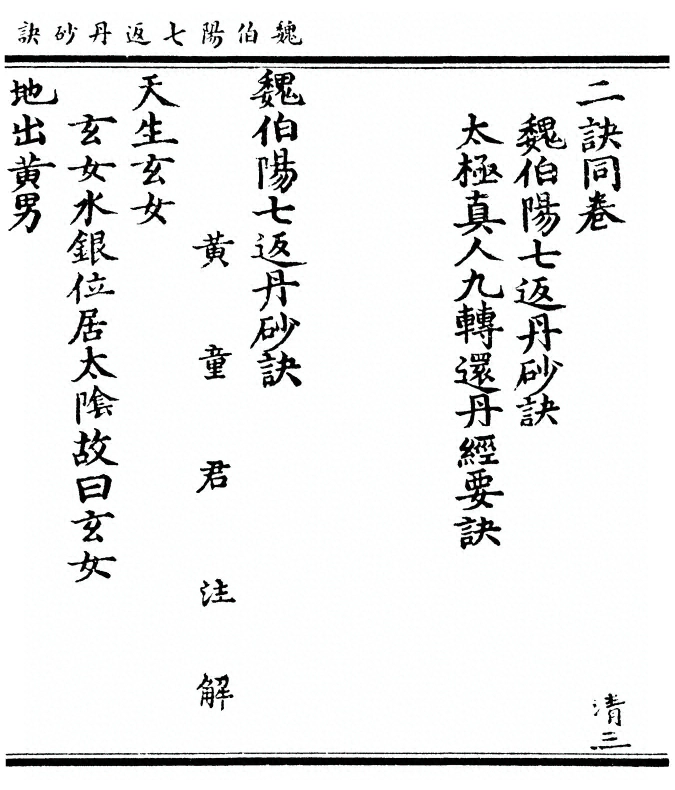 魏伯陽七返丹砂訣
二訣同卷
清三
魏伯陽七返丹砂訣
太極真人九轉還丹經要訣
魏伯陽七返丹砂訣
黃童君注解
天生玄女
玄女水銀位居太陰故曰玄女
地出黃男